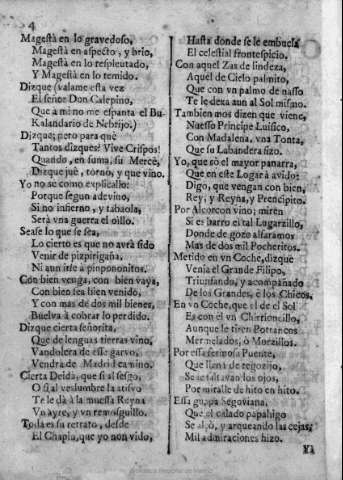 4
Magestà en lo gravedoso,
Magestà en aspecto, y brio,
Magestà en lo respleutado,
Y Magestà en lo temido.
Dizque (valame esta vez
El señor Don Calepino,
Que a mi no me espanta el Bu-
Kalandario de Nebrijo.)
Dizque; pero para què
Tantos dizques? Vive Crispos!
Quando, en suma, su Mercè,
Dizque juè, tornò, y que vino.
Yo no se como explicallo:
Porque segun adevino,
Si no infierno, y tabaola,
Serà vna guerra el oillo.
Sease lo que se sea,
Lo cierto es que no avrà sido
Venir de pizpirigaña,
Ni aun irse a pinpononitos.
Con bien venga, con bien vaya,
Con bien sea bien venido,
Y con mas de dos mil bienes,
Buelva à cobrar lo perdido.
Dizque cierta señorita,
Que de lenguas tierras vino,
Vandolera de esse garvo,
Vendrà de Madril camino.
Cierta Deida, que si al sesgo,
O si al veslumbre la atisvo
Te le dà à la muessa Reyna
Vn ayre, y vn remosguillo.
Toda es su retrato, desde
El Chapin, que yo non vido,
Hasta donde se le embucla
El celestial frontespicio.
Con aquel Zas de lindeza,
Aquel de Cielo palmito,
Que con vn palmo de nasso
Te le dexa aun al Sol mismo.
Tambien mos dizen que viene,
Nuesso Principe Luisico,
Con Madalena, vna Tonta,
Que su Labandera fizo.
Yo, que sò el mayor panarra,
Que en este Logar à avido;
Digo, que vengan con bien,
Rey, y Reyna, y Prencipito.
Por Alcorcon vino; miren
Si es barro el tal Lugarzillo,
Donde de gozo alfaramos
Mas de dos mil Pocheritos.
Metido en vn Coche, dizque
Venia el Grande Filipo,
Triunfando, y acompañado
De los Grandes, è los Chicos.
En vn Coche, que el de el Sol
Es con el vn Chirrioncillo,
Aunque le tiren Potrancos
Mermelados, ò Morzillos.
Por essa fermosa Puente,
Que llena de regozijo,
Se le saltavan los ojos,
Por miralle de hito en hito.
Essa guapa Segoviana,
Que el calado papahigo
Se alçò, y arqueando las cejas,
Mil admiraciones hizo.
Biblioteca Regional de Madrid